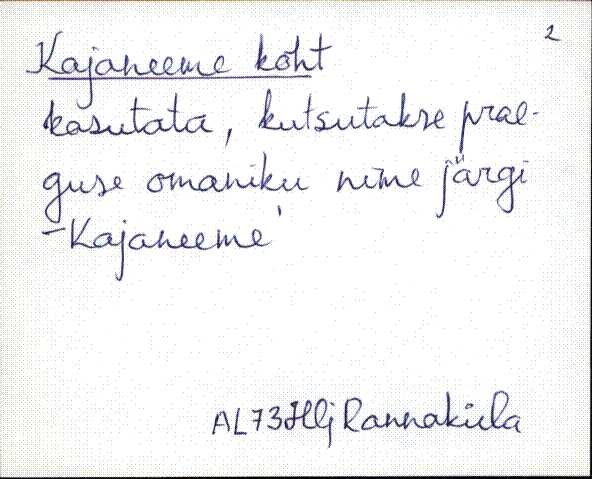 2
Kajaneeme koht
kasutata, kutsutakse prae-
guse omaniku nime järgi
-Kajaneeme'
AL73Hlj Rannaküla